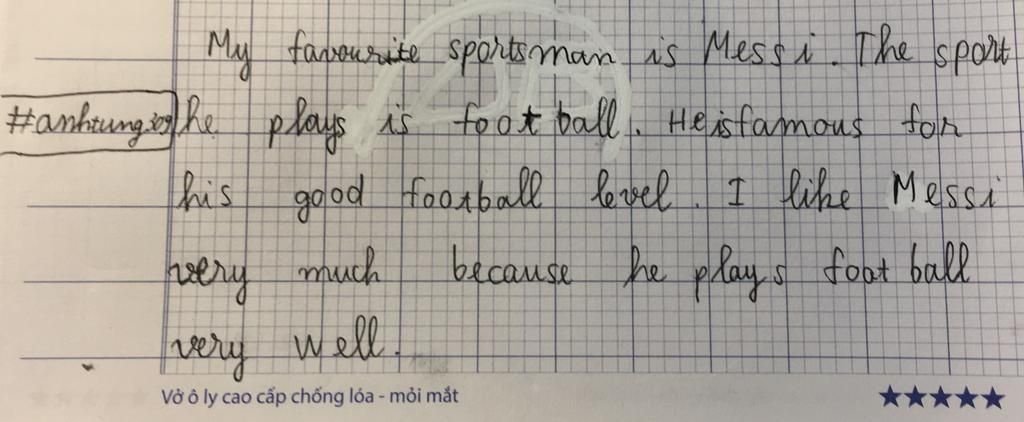 My favourite sportsman is Messi. The sport
#anhtung.309 he plays is foot ball. He is famous for
his good football level. I like Messi
very much because he plays foot ball
very well.
Vở ô ly cao cấp chống lóa - mỏi mắt